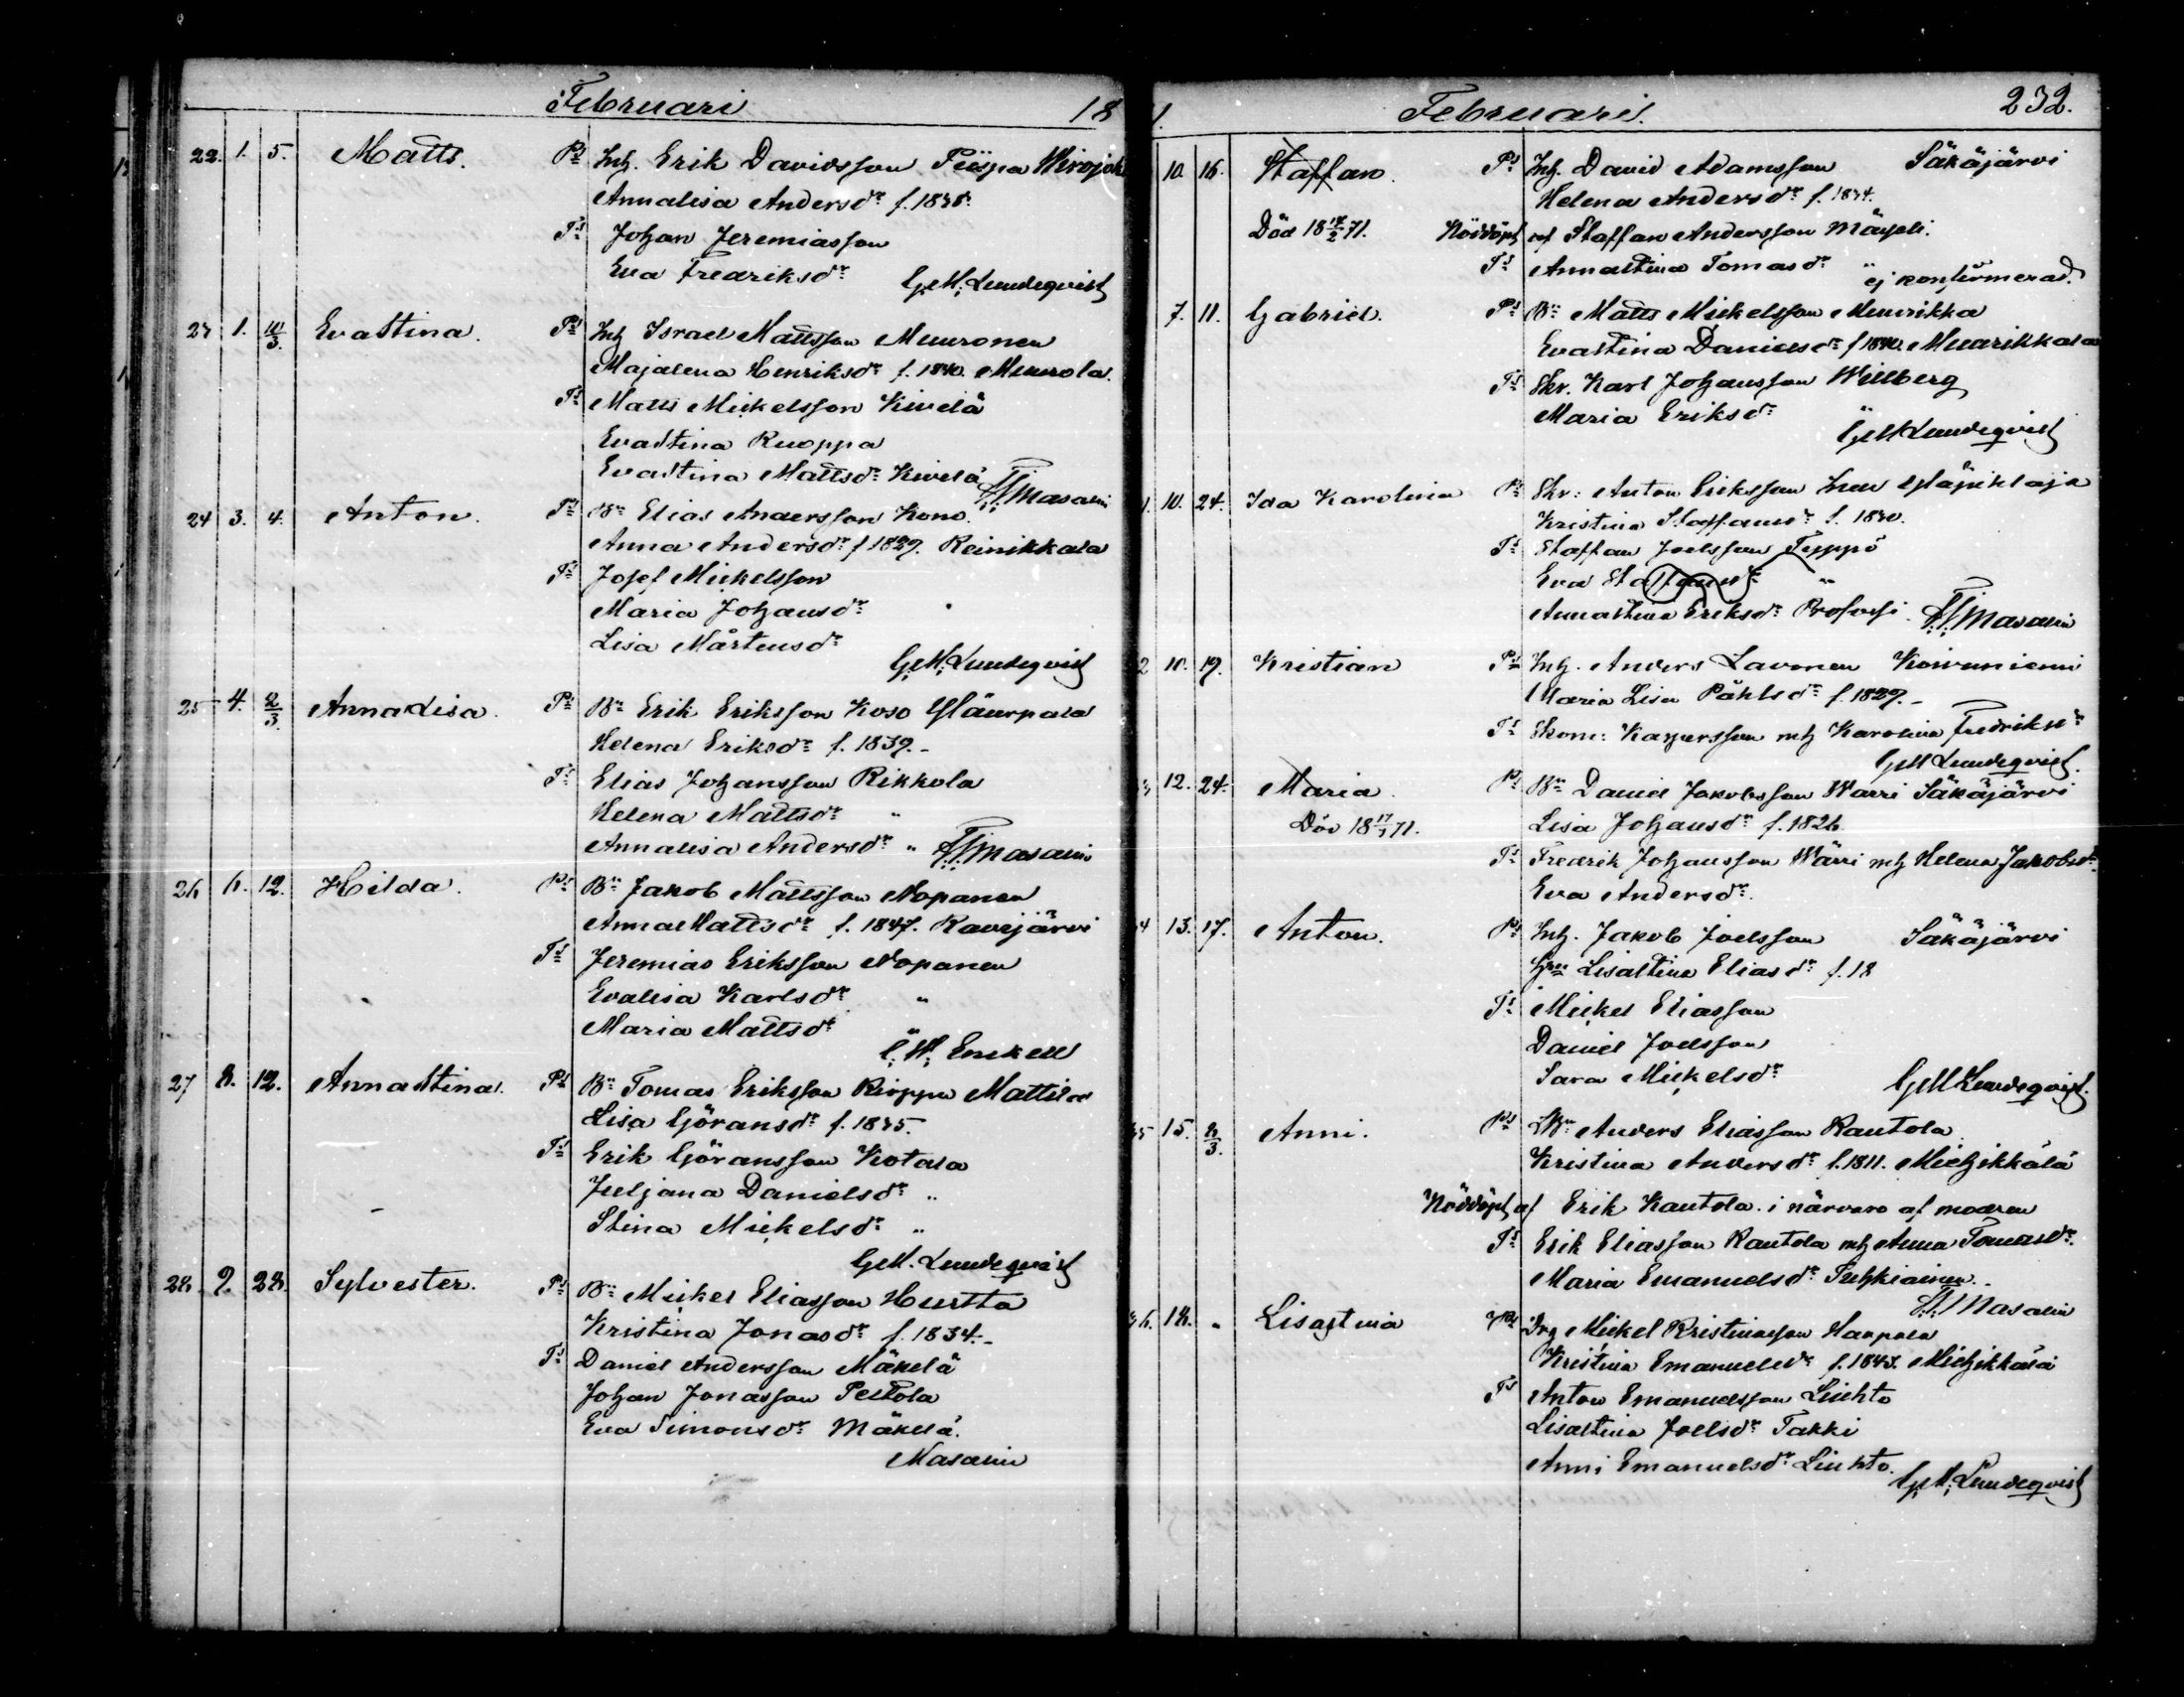 Februari 18
22. 1. 5. Matts. Ps Inh. Erik Davidsson Piispa Wirojoki
Annalisa Andersdr f. 1838.
Ts Johan Jeremiasson
Eva Fredriksdr
G.M. Lundeqvist
23 1. 10/3. Evastina. Ps Inh Israel Mattsson Muuronen
Majalena Henriksdr f. 1840. Muurola.
Ts Matts Mickelsson Kivelä
Evastina Ruoppa
Evastina Mattsdr Kivelä
Masalin
24 3. 4. Anton. Ps Bn Elias Andersson Kono.
Anna Andersdr f 1829. Reinikkala
Ts Josef Mickelsson
Maria Johansdr
Lisa Mårtensdr
G.M. Lundeqvist
25 4. 2/3. Annalisa. Ps Bn Erik Eriksson Koso Yläurpala
Helena Eriksdr f. 1839.-
Ts Elias Johansson Rikkola
Helena Mattsdr "
Annalisa Andersdr "
Masalin
26 6. 12. Hilda. Ps Bn Jakob Mattsson Nopanen
Anna Mattsdr f. 1847. Ravijärvi
Ts Jeremias Eriksson Nopanen
Evalisa Karlsdr "
Maria Mattsdr
C.W. Enckell
27 8. 12. Annastina. Ps Bn Tomas Eriksson Mattila
Lisa Göransdr f. 1835.
Ts Erik Göransson Kotala
Juljana Danielsdr "
Stina Mickelsdr "
G.M. Lundeqvist
28. 9. 28. Sylvester. Ps Bn Mickel Eliasson Hurtta
Kristina Jonasdr f. 1834.-
Ts Daniel Andersson Mäkelä
Johan Jonasson Peltola
Eva Simonsdr Mäkelä.
Masalin
1. Februari. 232.
10. 16. Staffan. Ps Inh. David Adamsson Säkäjärvi
Helena Andersdr f. 1834.
Död 18 17/2 71. Nöddöpt af Staffan Andersson
Ts Annastina Tomasdr ej konfirmerad.
7. 11. Gabriel. Ps Bn Matts Mickelsson Muurikka
Evastina Danielsdr f 1840. Muurikkala
Ts Skr. Karl Johansson Willberg
Maria Eriksdr
G M Lundeqvist
10. 24. Ida Karolina Ps Skr: Anton Eriksson
Kristina Staffansdr f. 1840.
Ts Staffan Joelsson Teppo
Eva Staffansdr "
Annastina Eriksdr
Masalin
2 10. 19. Kristian Ps Inh. Anders Lavonen Koivuniemi
Maria Lisa Påhlsdr f. 1829.-
Ts Skom: Kaspersson mh Karolina Fredriksdr
G M Lundeqvist.
3 12. 24. Maria. Ps Bn Daniel Jakobsson Warri Säkäjärvi
Död 18 17/3 71. Lisa Johansdr f. 1826
Ts Fredrik Johansson Wärri mh Helena Jakobsdr
Eva Andersdr.
4 13. 17. Anton. Ps Inh. Jakob Joelsson Säkäjärvi
Lisastina Eliasdr f. 18
Ts Mickel Eliasson
Daniel Joelsson
Sara Mickelsdr
G M Lundeqvist.
35 15. 8/3. Anni. Ps Bn Anders Eliasson Rautola
Kristina Andersdr f. 1811. Miehikkälä
Nöddöpt af Erik Rautola i närvaro af modren
Ts Erik Eliasson Rautola mh Anna Tomasdr.
Maria Emanuelsdr Tuhkiainen.-
Masalin
36. 18. " Lisastina Ps Drg Mickel Kristiansson Haapala
Kristina Emanuelsdr f. 1843. Miehikkälä
Ts Anton Emanuelsson Liuhto
Lisastina Joelsdr Takki
Anni Emanuelsdr Liuhto.
G.M. Lundeqvist